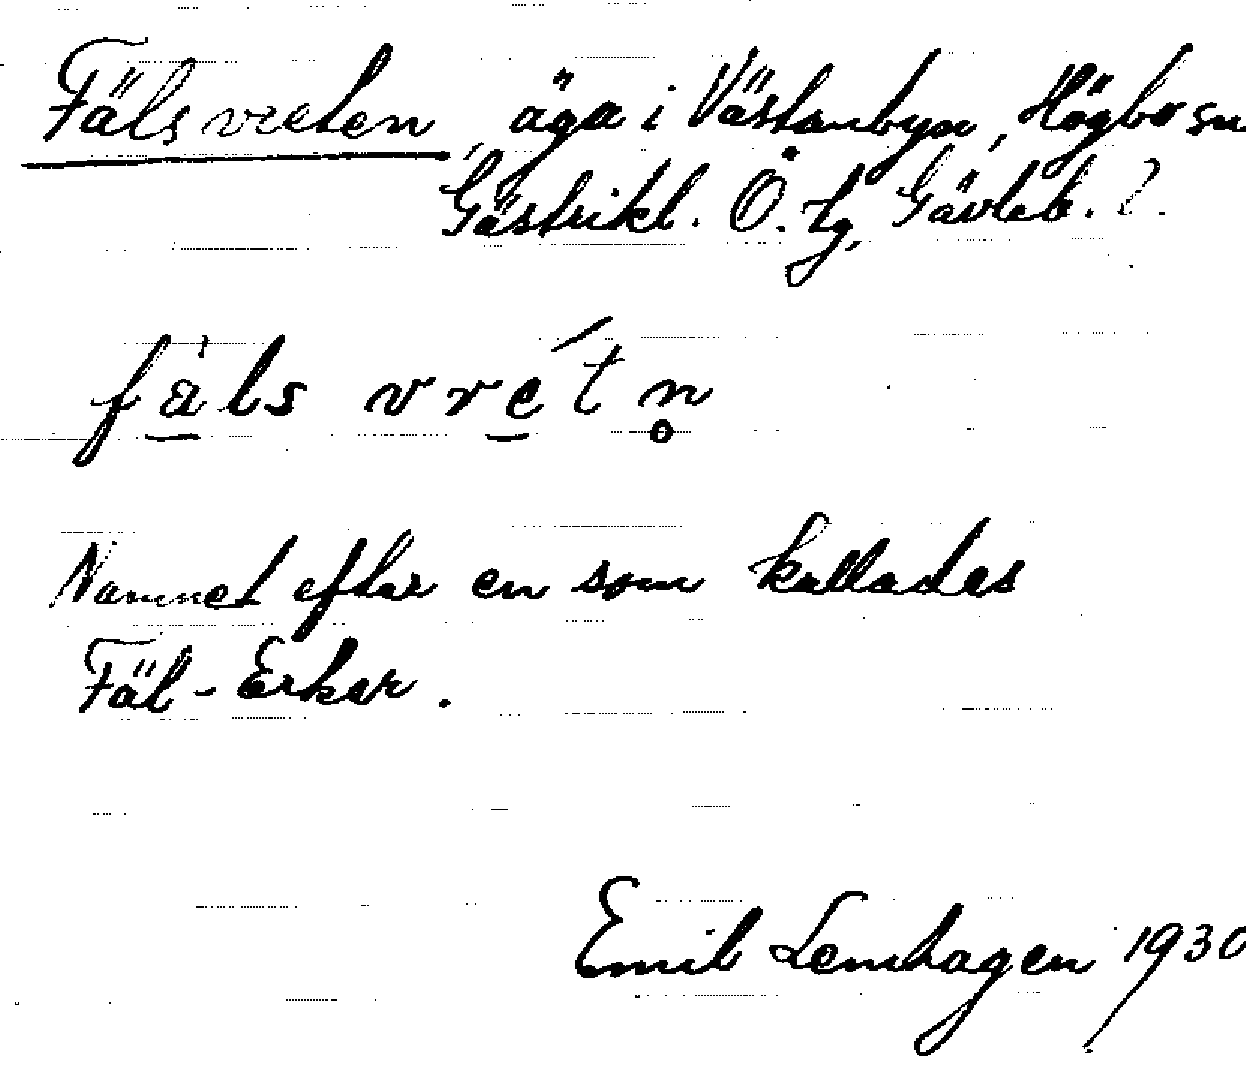 Fälsvreten, äga i Västanbyn, Högbo sn
Gästrikl. Ö. tg, Gävleb. ?.
fäls vretn̥
Namnet efter en som kallades
Fäl-Erker.
Emil Lemhagen 1930